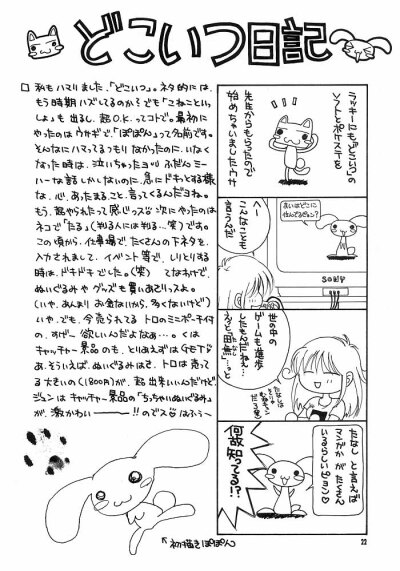 どこいつ日記
私もハマりました、「どこいつ」。ネタ的には、
もう時期ハズしてるのか?でも「こねこもいっ
しょ」も出るし、超O.K.ってコトで。最初に
やったのはウサギで、「ぽぽん」って名前です。
そんなにハマてるつもりなかったのに、いなく
なった時は、泣いちゃったヨッ ふだん ミー
ハーな話しかしないのに、急にドキッとする様
な、心、あったまること、言ってくるんだよね。
もう、超やられたって感じっス 次にやったのは
ネコで「たる」(判る人には判る…笑)です。
この頃から、仕事場で、たくさんの下ネタを、
入力されまして、イベント等で、しりとりする
時は、ドキドキでした。(笑) てなわけで、
ぬいぐるみやグッズも買いあさりっスよ。
(いや、あんまりお金ないから、多くないけど)
いや、でも、今売られてるトロのミニポーチ付
の、すげー欲しいんだよなあ…。くは
キャッチャー景品のも、とりあえずはGET
あ、そういえば、ぬいぐるみはさ、トロは売っ
てる大きいの(1800円)が、超出来いいんだけど
ジュンはキャッチャー景品の「ちっちゃいぬいぐるみ」
が、激かわいーーー!!のでス はふぅ〜
初描きぽぽん
ラッキーにも「どこいつ」の
ソフトとポケステを
先生からもらったので
始めちゃいましたウサ
あいはどこに
住んでるピョン?
へー
こんなことも
言うんだ
SONY
世の中の
ゲームも進歩
したもんだねぇ…
えっと「田無」と
たなし
たなしと言えば
マンガかがたくさん
いるらしいピョン
何故知ってる!?
22